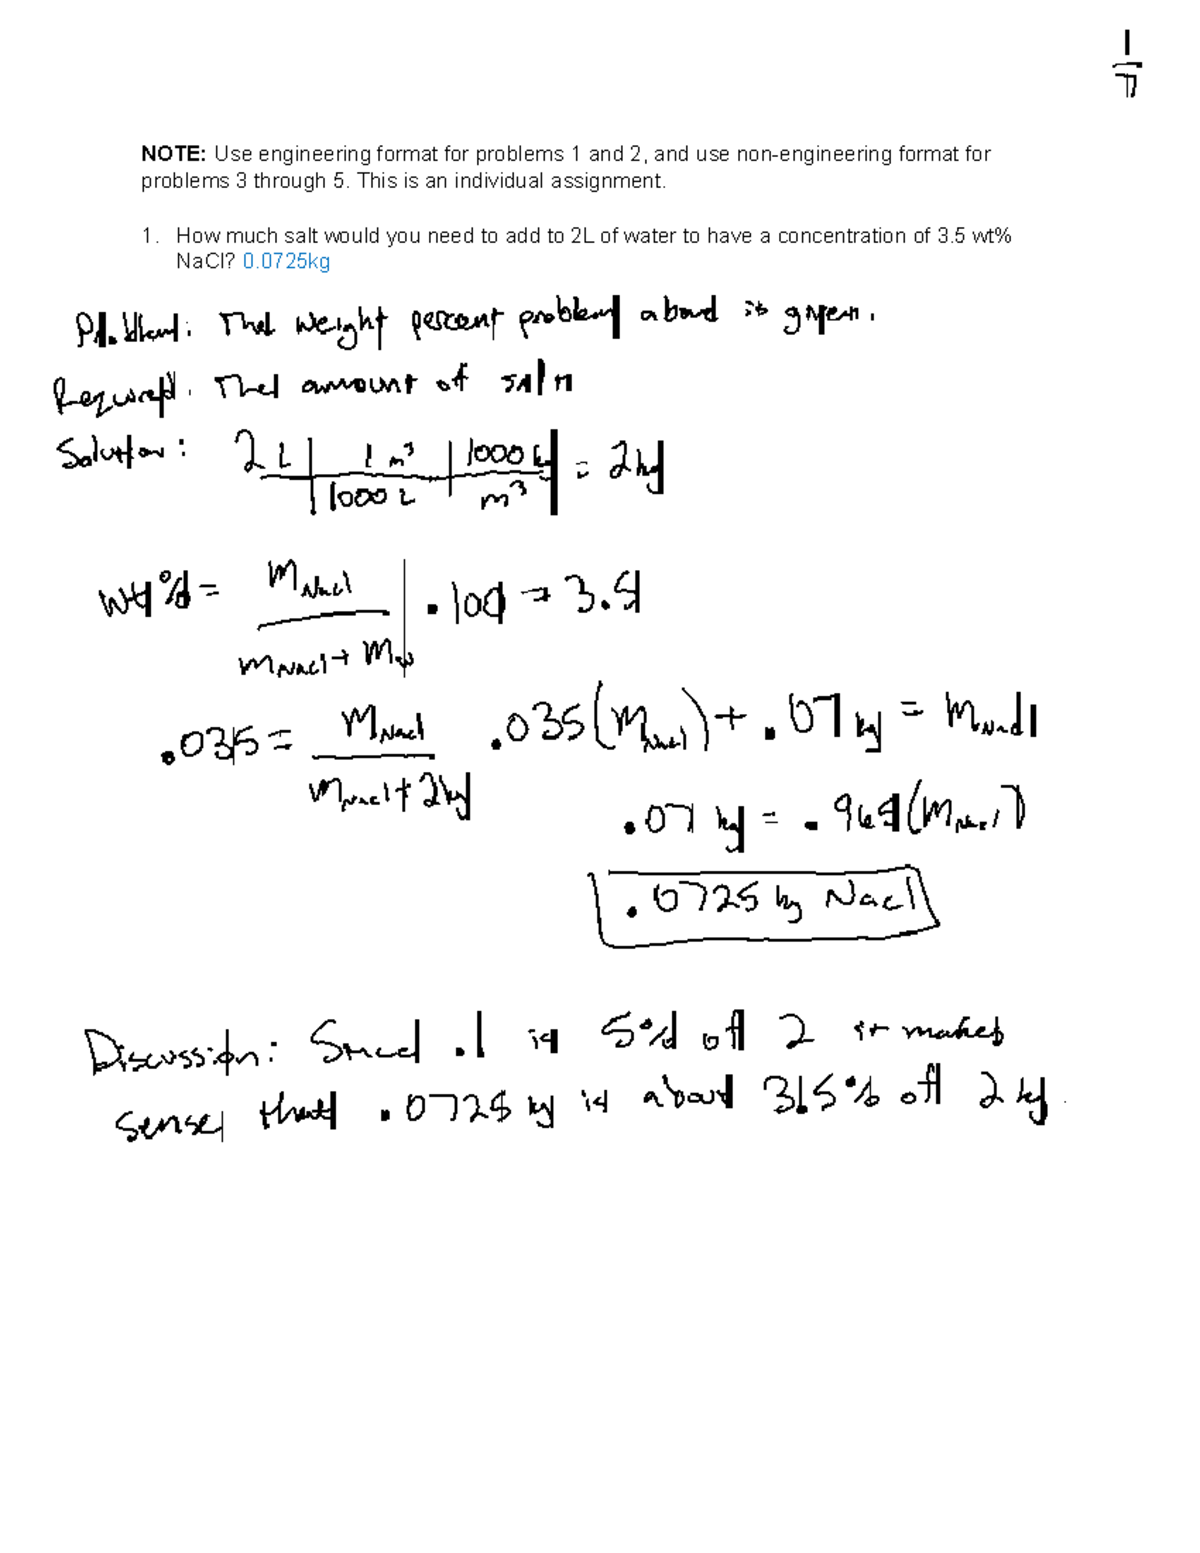 1
7
NOTE: Use engineering format for problems 1 and 2, and use non-engineering format for
problems 3 through 5. This is an individual assignment.
1. How much salt would you need to add to 2L of water to have a concentration of 3.5 wt%
NaCl? 0.0725kg
Problem: The weight percent problem above is given.
Required: The amount of salt
Solution: 2 L | 1 m³ | 1000 kg = 2 kg
1000 L | m³
wt% = m NaCl / m NaCl + m w · 100 = 3.5
.035 = m NaCl / m NaCl + 2 kg .035 (m NaCl) + .07 kg = m NaCl
.07 kg = .965 (m NaCl)
.0725 kg NaCl
Discussion: Since .1 is 5% of 2 it makes
sense that .0725 kg is about 3.5% of 2 kg.